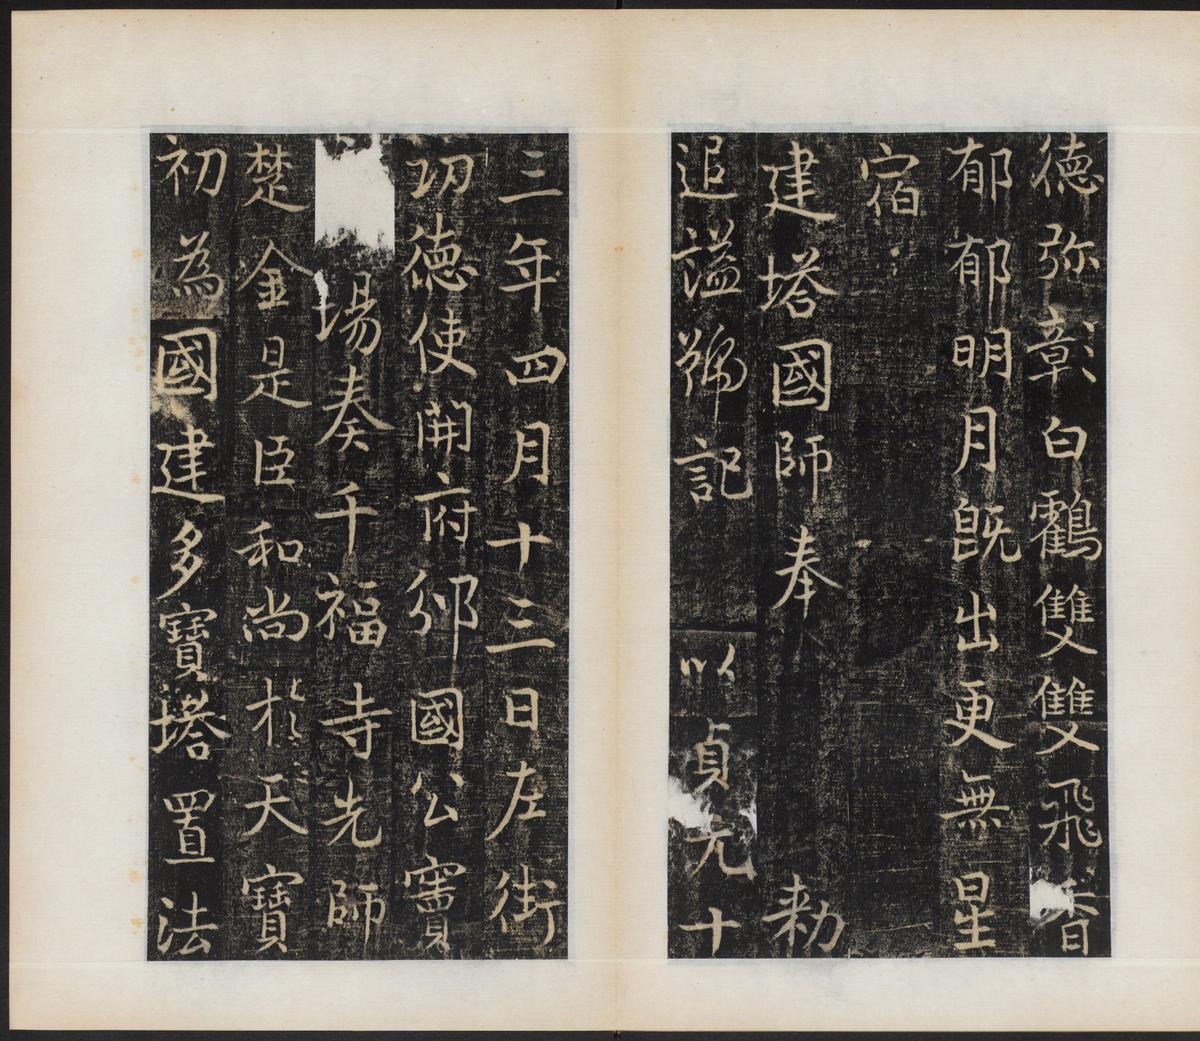 德弥彰白鶴雙雙飛香
郁郁明月既出更無星
宿
建塔國師奉勑
追謚號記以貞元十
三年四月十三日左街
功德使開府邠國公竇
場奏千福寺先師
楚金是臣和尚於天寶
初為國建多寶塔置法